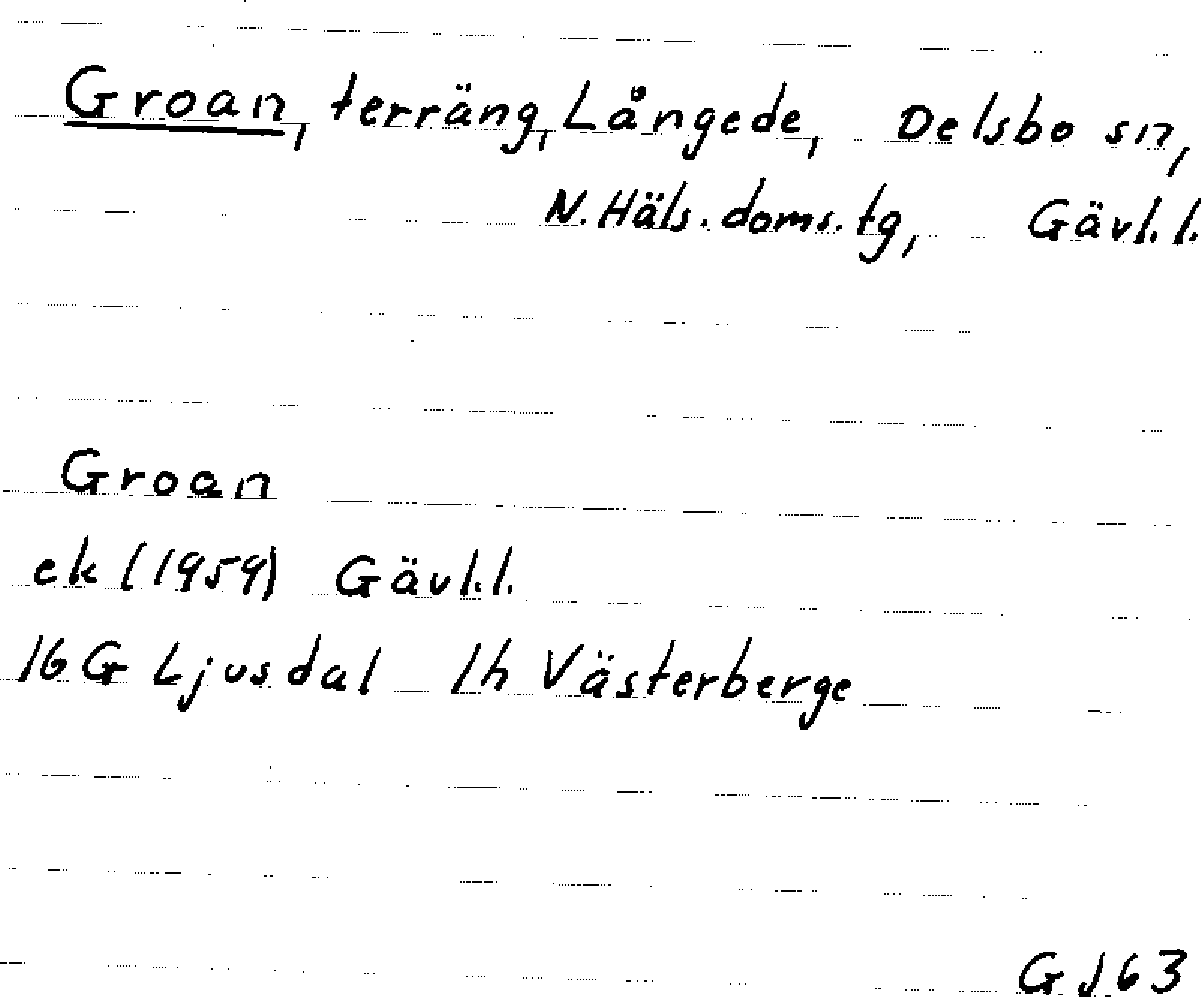 Groan, terräng, Långede, Delsbo sn,
N. Häls. doms. tg, Gävl.l.
Groan
ek (1959) Gävl.l.
16 G Ljusdal 1h Västerberge
GJ63